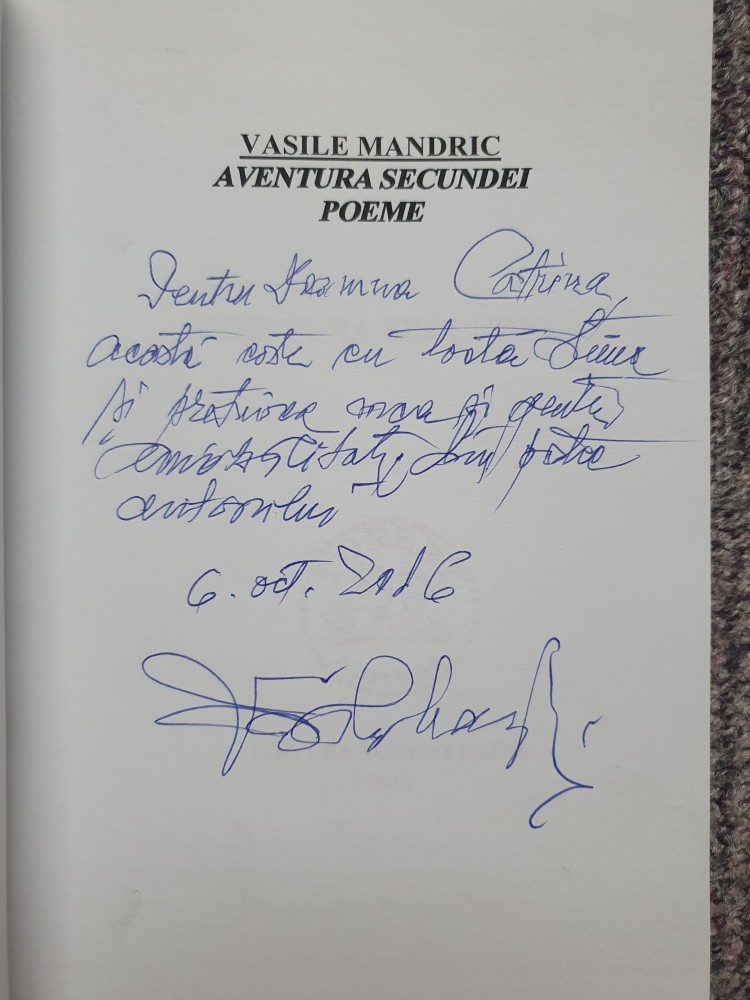 VASILE MANDRIC
AVENTURA SECUNDEI
POEME
Pentru Doamna Catrina,
această carte cu toată stima
și prețuirea mea și pentru
din partea
autorului
6. oct. 2016